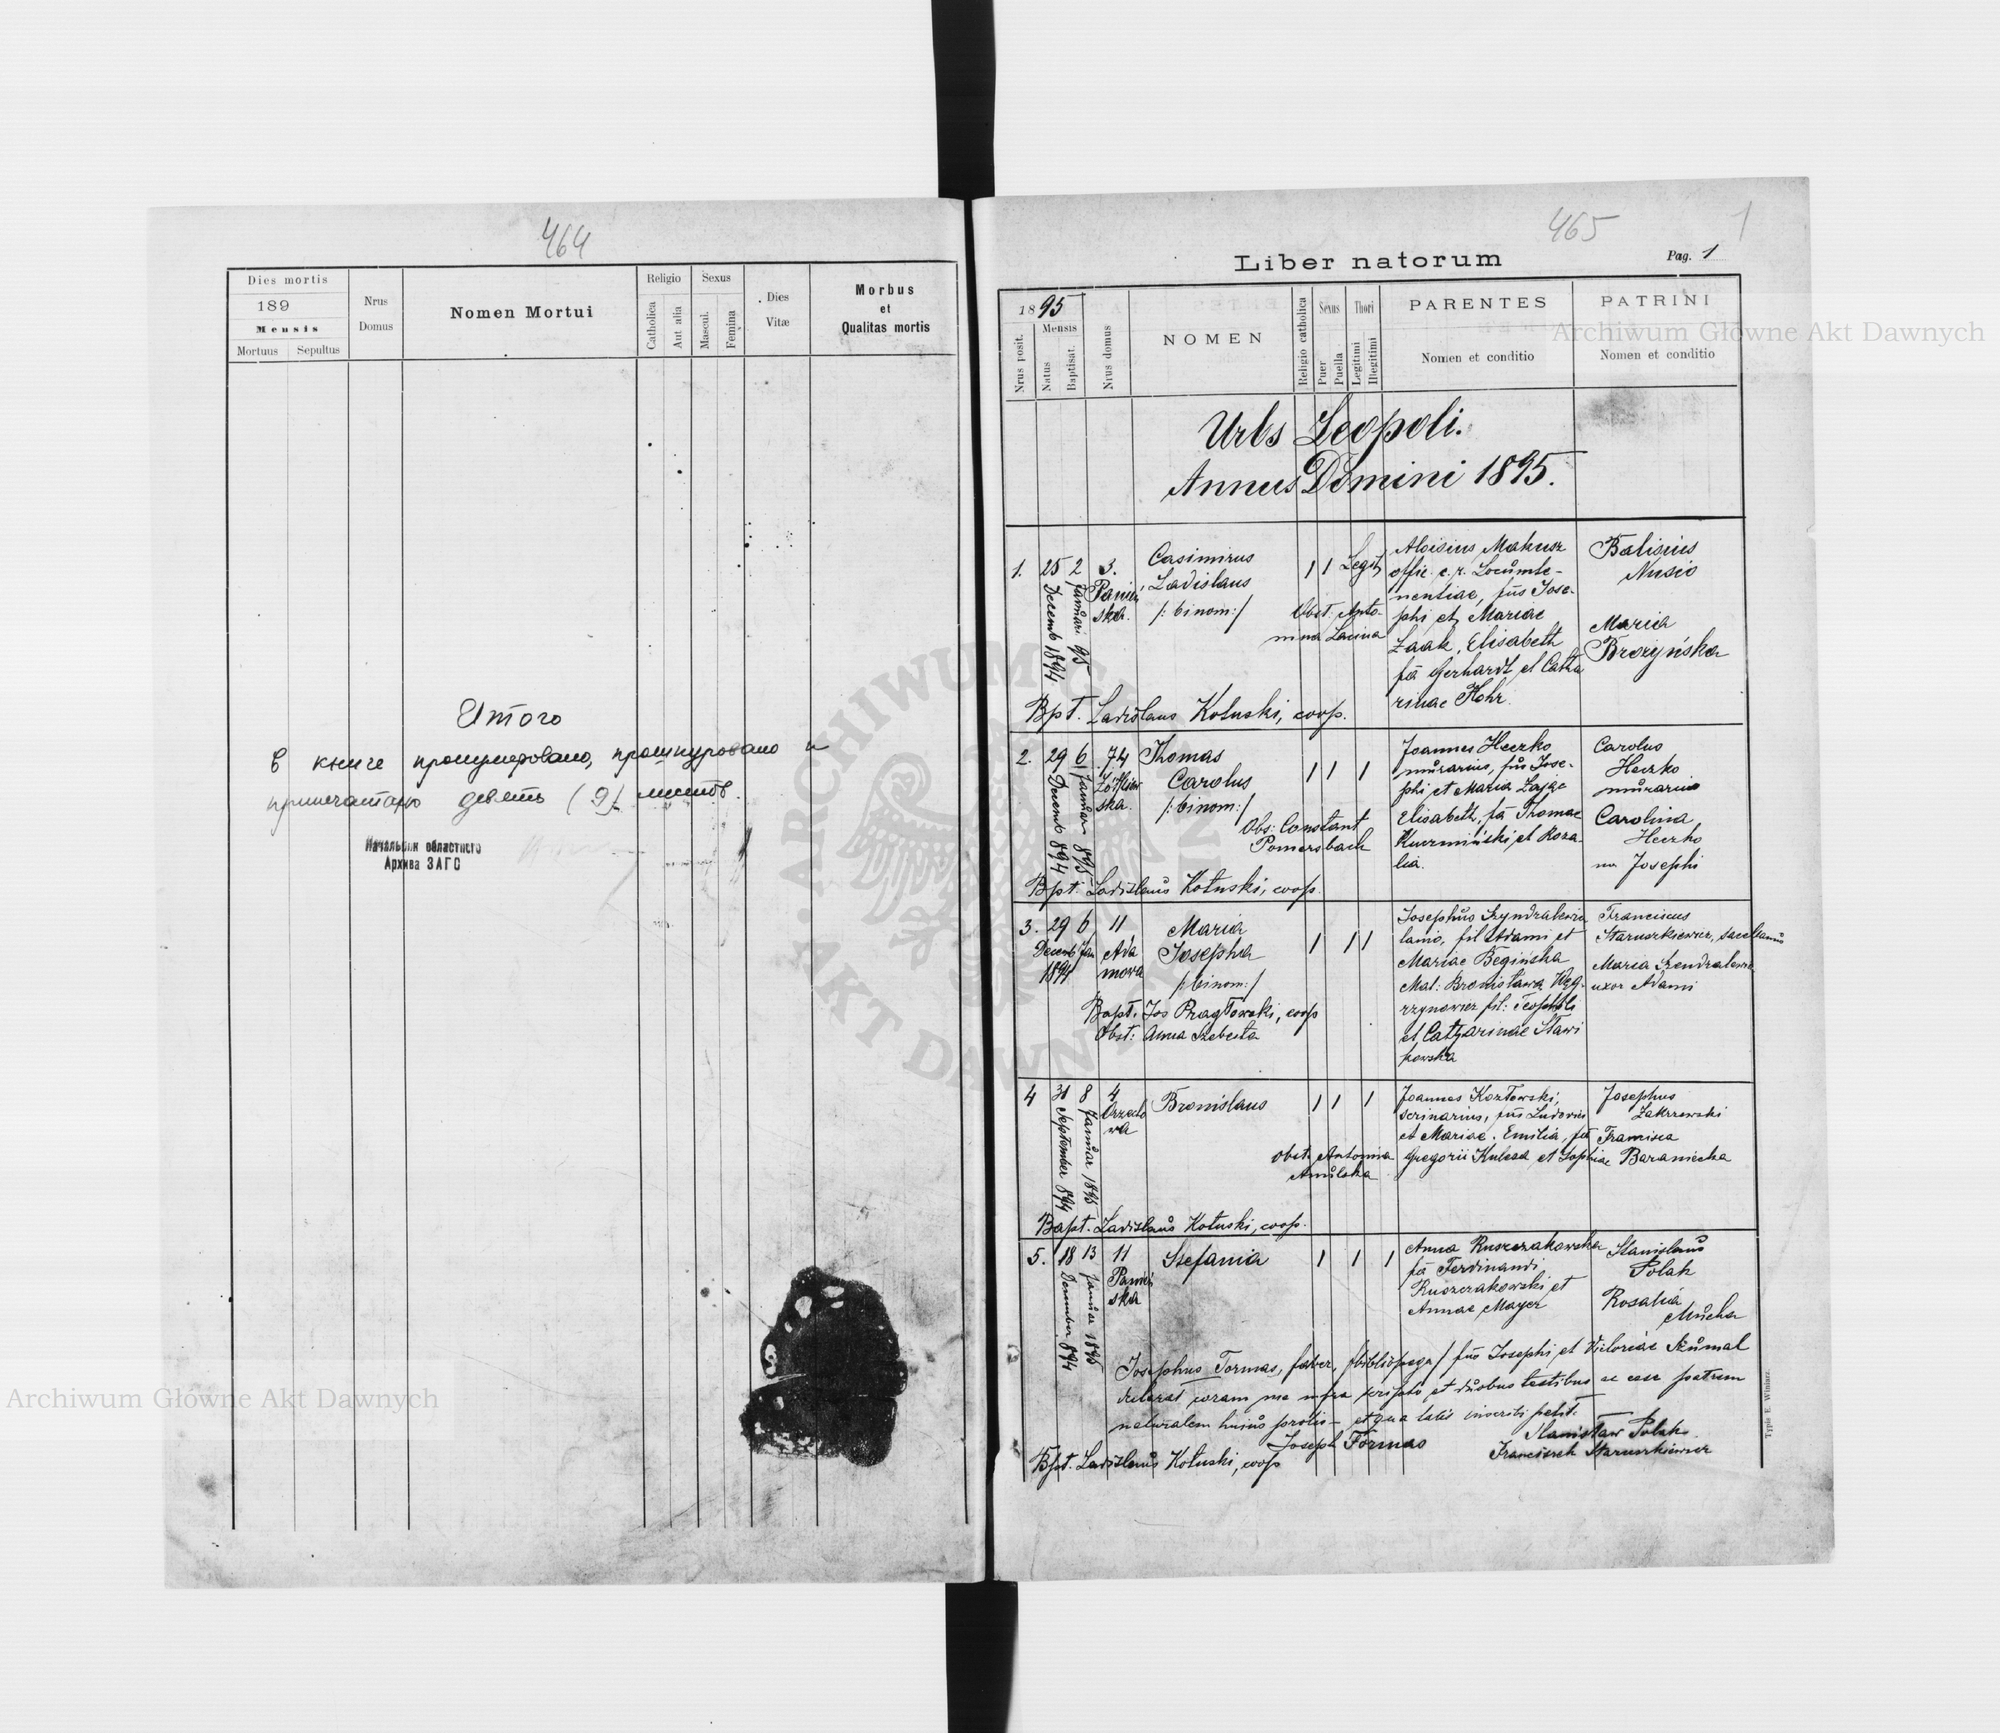 464
Dies mortis
189
Mensis
Mortuus Sepultus
Nrus Domus
Nomen Mortui
Religio
Catholica
Aut alia
Sexus
Mascul.
Femina
Dies Vitæ
Morbus
et
Qualitas mortis
Итого
В книге пронумеровано, прошнуровано и
припечатано девять (9) листов.
Начальник областного
Архива ЗАГС
465
1
Liber natorum
Pag. 1
1895
Nrus posit.
Mensis
Natus
Baptisat.
Nrus domus
NOMEN
Religio catholica
Sexus
Puer
Puella
Thori
Legitimi
Illegitimi
PARENTES
Nomen et conditio
PATRINI
Nomen et conditio
Urbs Leopoli.
Annus Domini 1895.
1. 25 Decemb 1894. 2 Januari 95
3. Panień
ska.
Casimirus
Ladislaus
/: binom :/
1 1 Legit
Obst. Anto-
nina
Aloisius Makusz
offic. c. r. Locumte-
nentiae, fius Jose-
phi et Mariae
Żaak, Elisabeth
fa Gerhardt et Catha
rinae
Nusio
Maria
Brożyńska
Bpt. Ladislaus Kotuski, coop.
2. 29 Decemb 894 6 Januar 895
74
Żółkiew
ska.
Thomas
Carolus
/: binom :/
1 1 1
Obs: Constant
Pomersbach
Joannes Heczko
murarius, fius Jose-
phi et Maria Zając
Elisabeth, fa Thomae
Kuczmiński et Rosa-
lia.
Carolus
Heczko
murarius
Carolina
Heczko
Josephi
Bpt. Ladislaus Kotuski, coop.
3. 29 6 11
Decemb Jan
1894
Ada
mowa
Maria
Josepha
/: binom :/
1 1 1
Bapt. Jos Pragłowski, coop
Obst: Anna Szebesta
Josephus Szyndralewicz
lanio, fil Adami et
Mariae Begińska
Mat: Bronisława Węg-
rzynowicz fil: Teophili
et Catharinae Sławi
kowska
Franciscus
Staruszkiewicz,
Maria Szendralewicz
uxor Adami
4 31 September 894 8 Januar 1895
4
Orzecho
wa
Bronislaus
1 1 1
Obst. Antonina
Joannes Kozłowski,
scrinarius, fius Ludovici
et Mariae. Emilia, fa
Gregorii Kulesza et Sophiae
Josephus
Zakrzewski
Francisca
Baraniecka
Bapt. Ladislaus Kotuski, coop.
5. 18 December 894 13 Januar 1895
11
Panień
ska
Stefania
1 1 1
Anna Ruszczakowska
fa Ferdinandi
Ruszczakowski et
Annae Mayer
Stanislaus
Polak
Rosalia
Mucha
Josephus Formas, faber, /bibliopega/ fius Josephi et Victoriae Szumal
declarat coram me infra scripto et duobus testibus se esse patrem
naturalem hujus prolis - et qua talis inscribi petit.
Joseph Formas
Stanisław Polak
Franciszek Staruszkiewicz
Bpt. Ladislaus Kotuski, coop
Typis E. Winiarz
Archiwum Główne Akt Dawnych
Archiwum Główne Akt Dawnych